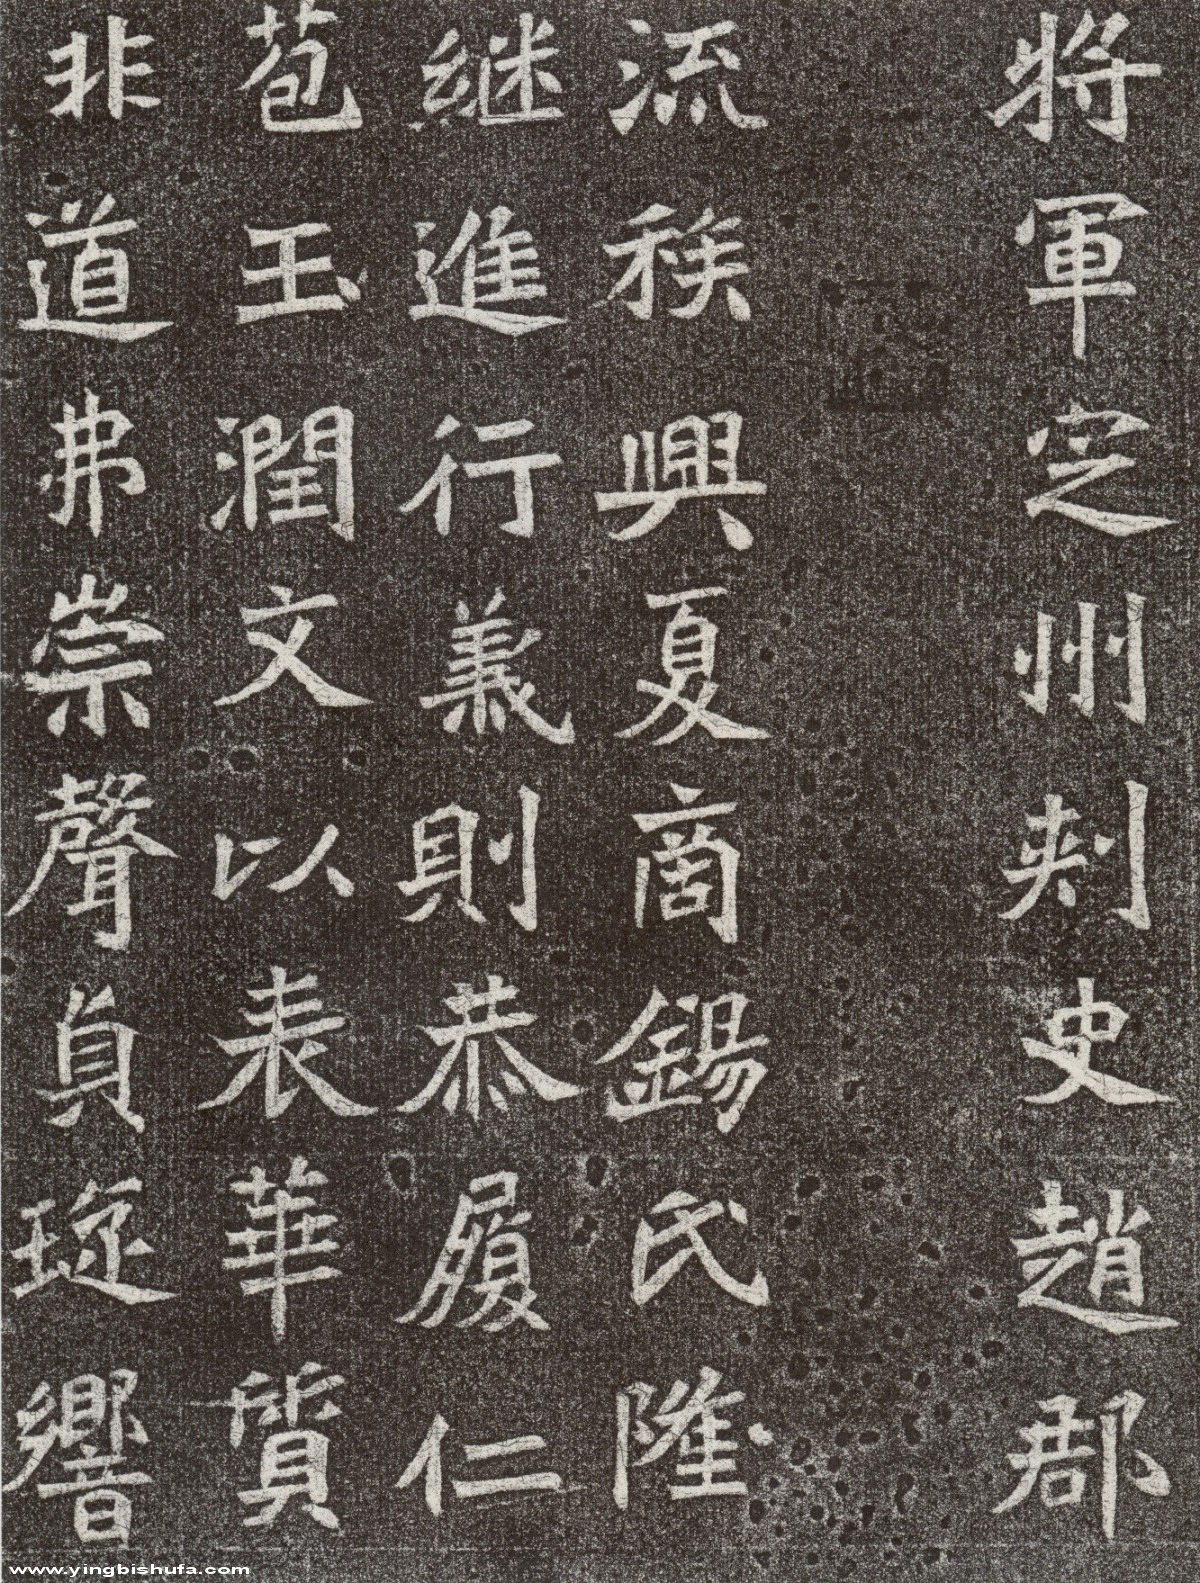 將軍定州刾史趙郡
流族興夏商錫氏隆
継進行義則恭履仁
苞玉潤文以表華質
非道弗崇聲貞琁響
www.yingbishufa.com